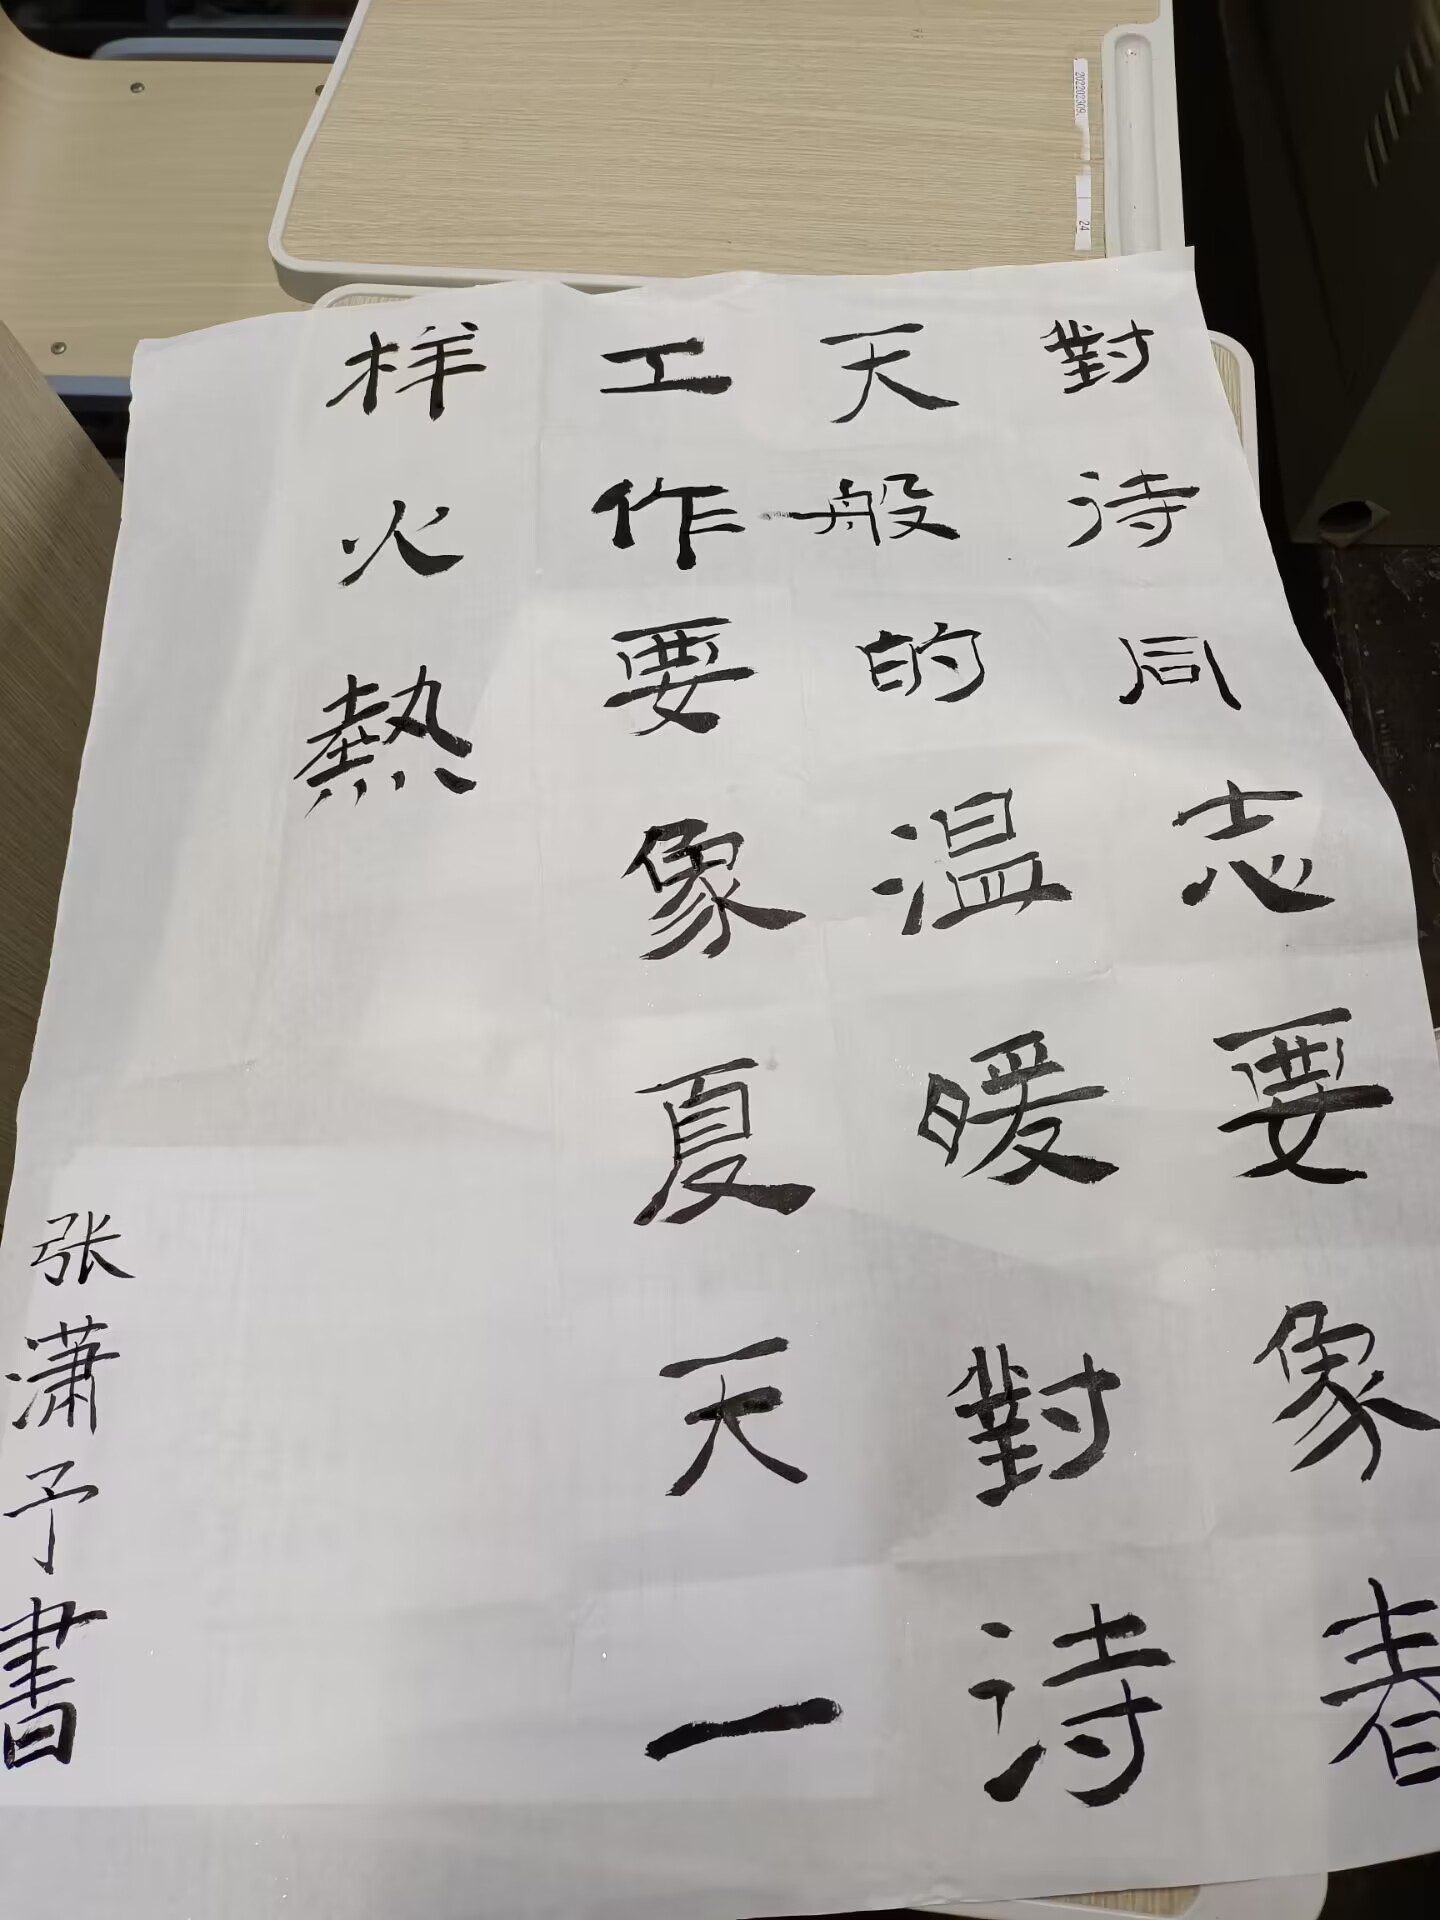 對待同志要象春
天般的温暖對待
工作要象夏天一
样火熱
张潇予書
202202309
24